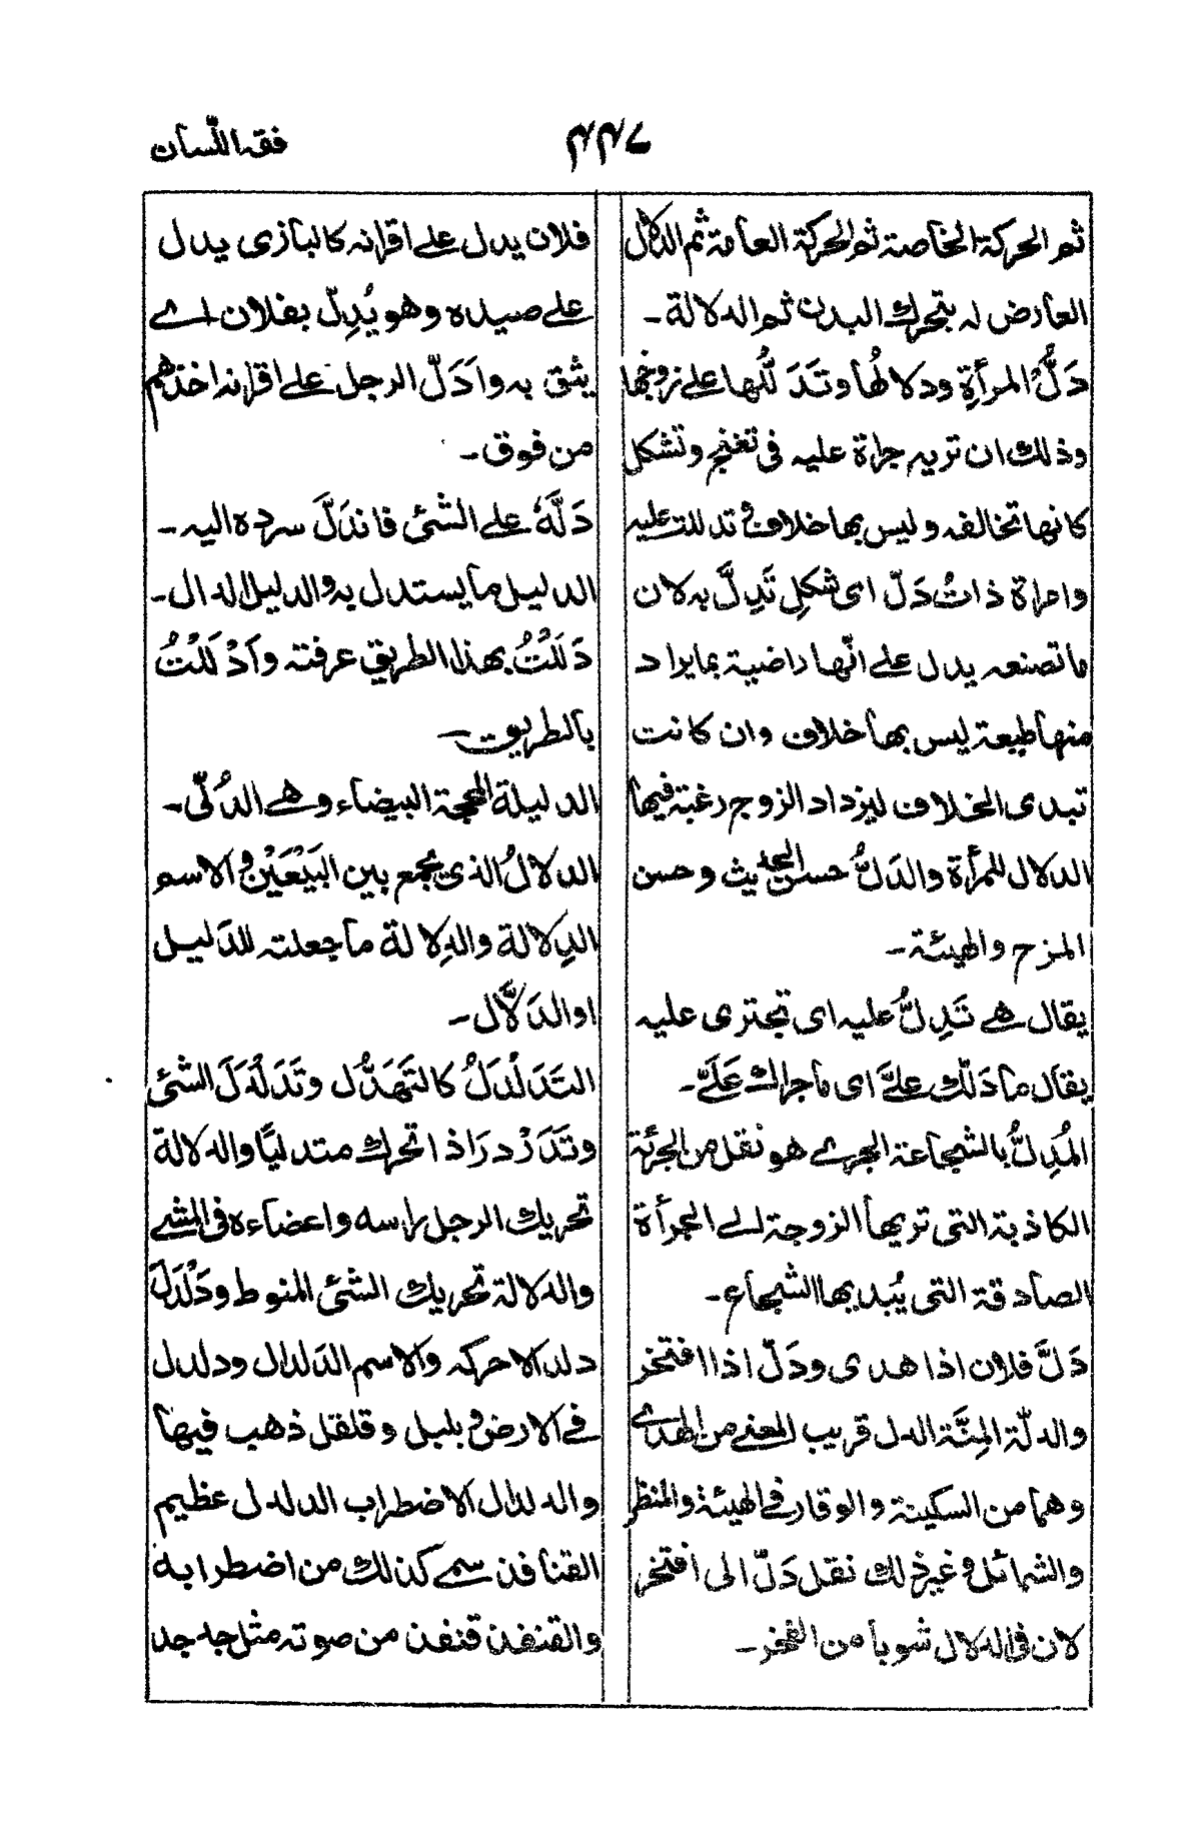 فقہ اللّسان
ثم الحركة الخاصة ثم الحركة العامة ثم الدلال
العارض له بتحرك البدن ثم الدلالة۔
دَلُّ المرأةِ ودلالُها وتَدَلُّلُها على زوجها
وذلك ان تريه جراة عليه فى تغنج وتشكل
كانها تخالفه وليس بها خلاف و تدللت عليه
وامراة ذاتُ دَلّ اى شكلٍ تَدِلَّ به لان
ما تصنعه يدل على انّها راضية بما يراد
منها طبيعة ليس بها خلاف وان كانت
تبدى الخلاف ليزداد الزوج رغبة فيها
الدلال للمرأة والدَلُّ حسن الحديث وحسن
المزح والهيئة۔
يقال هے تَدِلُّ عليه اى تجترى عليه
يقال ما دَلّك علىَّ اى ما جراك عَلَىَّ۔
المُدِلُّ بالشجاعة الجرے هو نقل من الجرئة
الكاذبة التى تريها الزوجة الے الجرأة
الصادقة التى يُبد بها الشجاع۔
دَلَّ فلان اذا هدى ودَلّ اذا افتخر
والدلّة المِنَّة الدل قريب المعنے من الهدے
وهما من السكينة والوقار فے الهيئة والمنظر
والشمائل و غير ذلك نقل دَلّ الى افتخر
لان فى الدلال شوبا من الفخر۔
فلان يدل علے اقرانه كالبازى يدل
علے صيده وهو يُدِلّ بفلان اے
يثق به وادَلّ الرجل علے اقرانه اخذهم
من فوق۔
دَلَّهٗ علے الشئ فاندَلَّ سرده اليه۔
الدليل ما يستدل به والدليل الدال۔
دَلَلْتُ بهذا الطريق عرفته وَاَدْلَلْتُ
بالطريق۔
الدليلة المحجة البيضاء وهے الدُلّى۔
الدلالُ الذى يجمع بين البَيّعَيْن و الاسم
الدِلالة والدِلالة ما جعلته للدَليل
او الدَلّال۔
التَدَلْدُلُ كالتَهَدُّل وتَدَلْدَلَ الشئ
وتَدَرْدرَ اذا تحرك متدليًا والدلالة
تحريك الرجل راسه واعضاءه فى المشے
والدلالة تحريك الشئ المنوط ودَلْدَلَ
دلدالا حركه والاسم الدَلدال ودلدل
فے الارض و بلبل وقلقل ذهب فيها
والدلدال الاضطراب الدلدل عظيم
القنافذ سمے كذلك من اضطرابه
والقنفذ قنفذ من صوته مثل جد جد